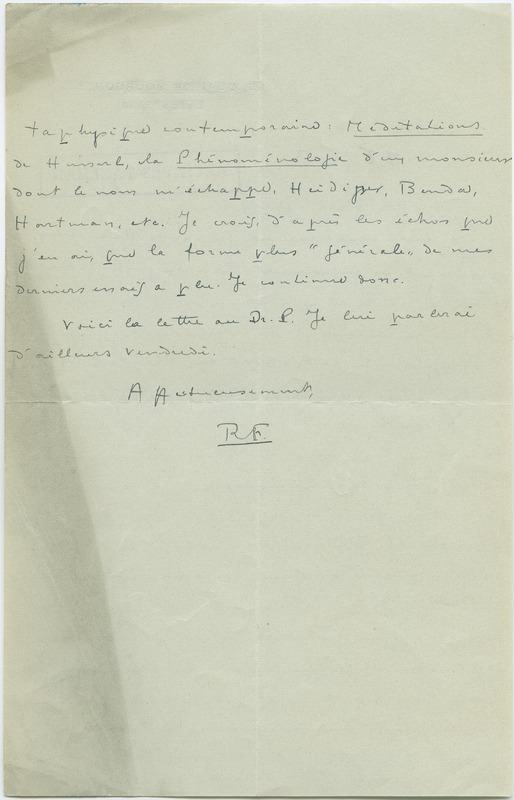 taphysique contemporaine : Méditations
de Husserl, la Phénoménologie d'un monsieur
dont le nom m'échappe, Heidigger, Benda,
Hartman, etc. Je crois, d'après les échos que
j'en ai, que la forme plus "générale" de mes
derniers essais a plu. Je continue donc.
Voici la lettre au Dr. P. Je lui parlerai
d'ailleurs vendredi.
Affectueusement,
RF.